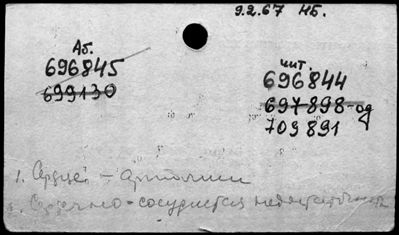 9.2.67 НБ.
Аб.
696845
699130
чит.
696844
697898-од
709891
1. Сердце -
Сердечно-сосудистая недостаточность